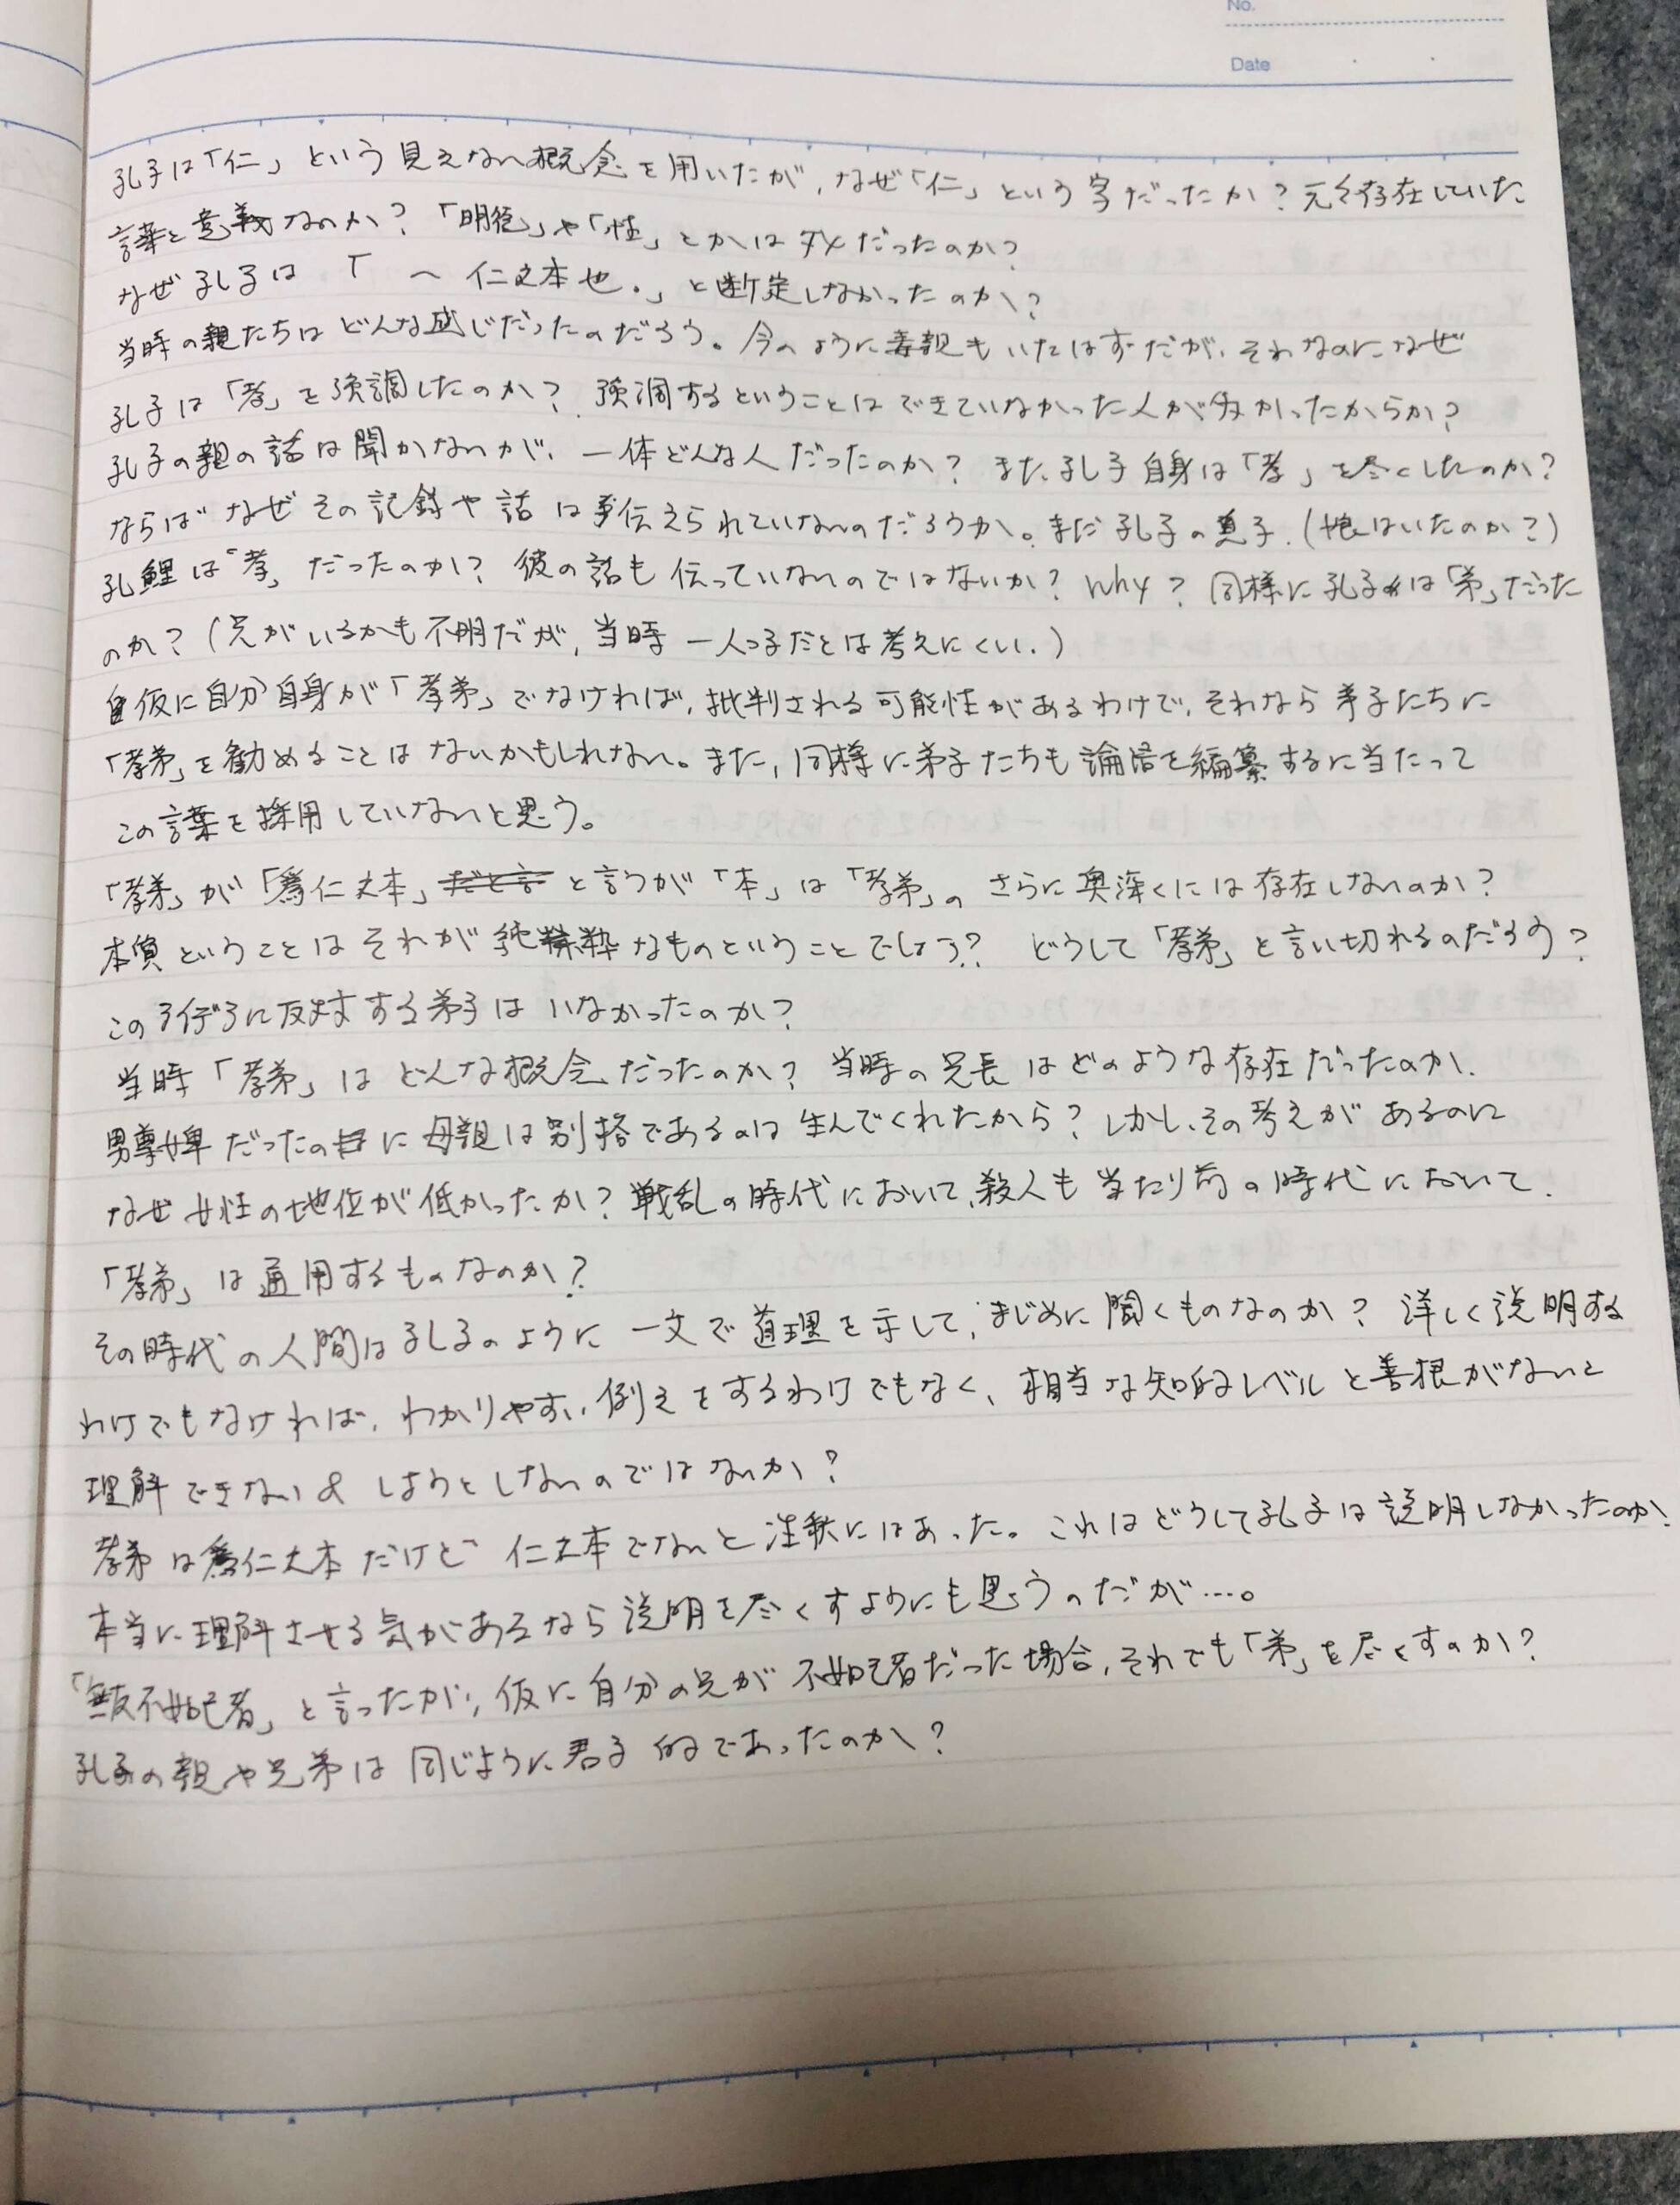 No.
Date
孔子は「仁」という見えない概念を用いたが、なぜ「仁」という字だったか？元々存在していた
言葉と意義なのか？「明徳」や「性」とかはダメだったのか？
なぜ孔子は「～仁之本也。」と断定しなかったのか？
当時の親たちはどんな感じだったのだろう。今のように毒親もいたはずだが、それなのになぜ
孔子は「孝」を強調したのか？強調するということはできていなかった人が多かったからか？
孔子の親の話は聞かないが、一体どんな人だったのか？また、孔子自身は「孝」を尽くしたのか？
ならばなぜその記録や話は伝えられていないのだろうか。まだ孔子の息子、（娘はいたのか？）
孔鯉は「孝」だったのか？彼の話も伝っていないのではないか？Why？同様に孔子は「弟」だった
のか？（兄がいるかも不明だが、当時一人っ子だとは考えにくい、）
仮に自分自身が「孝弟」でなければ、批判される可能性があるわけで、それなら弟子たちに
「孝弟」を勧めることはないかもしれない。また、同様に弟子たちも論語を編纂するに当たって
この言葉を採用していないと思う。
「孝弟」が「為仁之本」と言うが「本」は「孝弟」のさらに奥深くには存在しないのか？
本質ということはそれが純粋なものということでしょう？どうして「孝弟」と言い切れるのだろう？
このイデアに反対する弟子はいなかったのか？
当時「孝弟」はどんな概念だったのか？当時の兄長はどのような存在だったのか、
男尊女卑だったのに母親は別格であるのは生んでくれたから？しかし、その考えがあるのに
なぜ女性の地位が低かったか？戦乱の時代において、殺人も当たり前の時代において、
「孝弟」は通用するものなのか？
その時代の人間は孔子のように一文で道理を示して、まじめに聞くものなのか？詳しく説明する
わけでもなければ、わかりやすい例えをするわけでもなく、相当な知的レベルと善根がないと
理解できない & しようとしないのではないか？
孝弟は為仁之本だけど仁之本でないと注釈にはあった。これはどうして孔子は説明しなかったのか？
本当に理解させる気があるなら説明を尽くすようにも思うのだが…。
「無友不如己者」と言ったが、仮に自分の兄が不如己者だった場合、それでも「弟」を尽くすのか？
孔子の親や兄弟は同じように君子的であったのか？